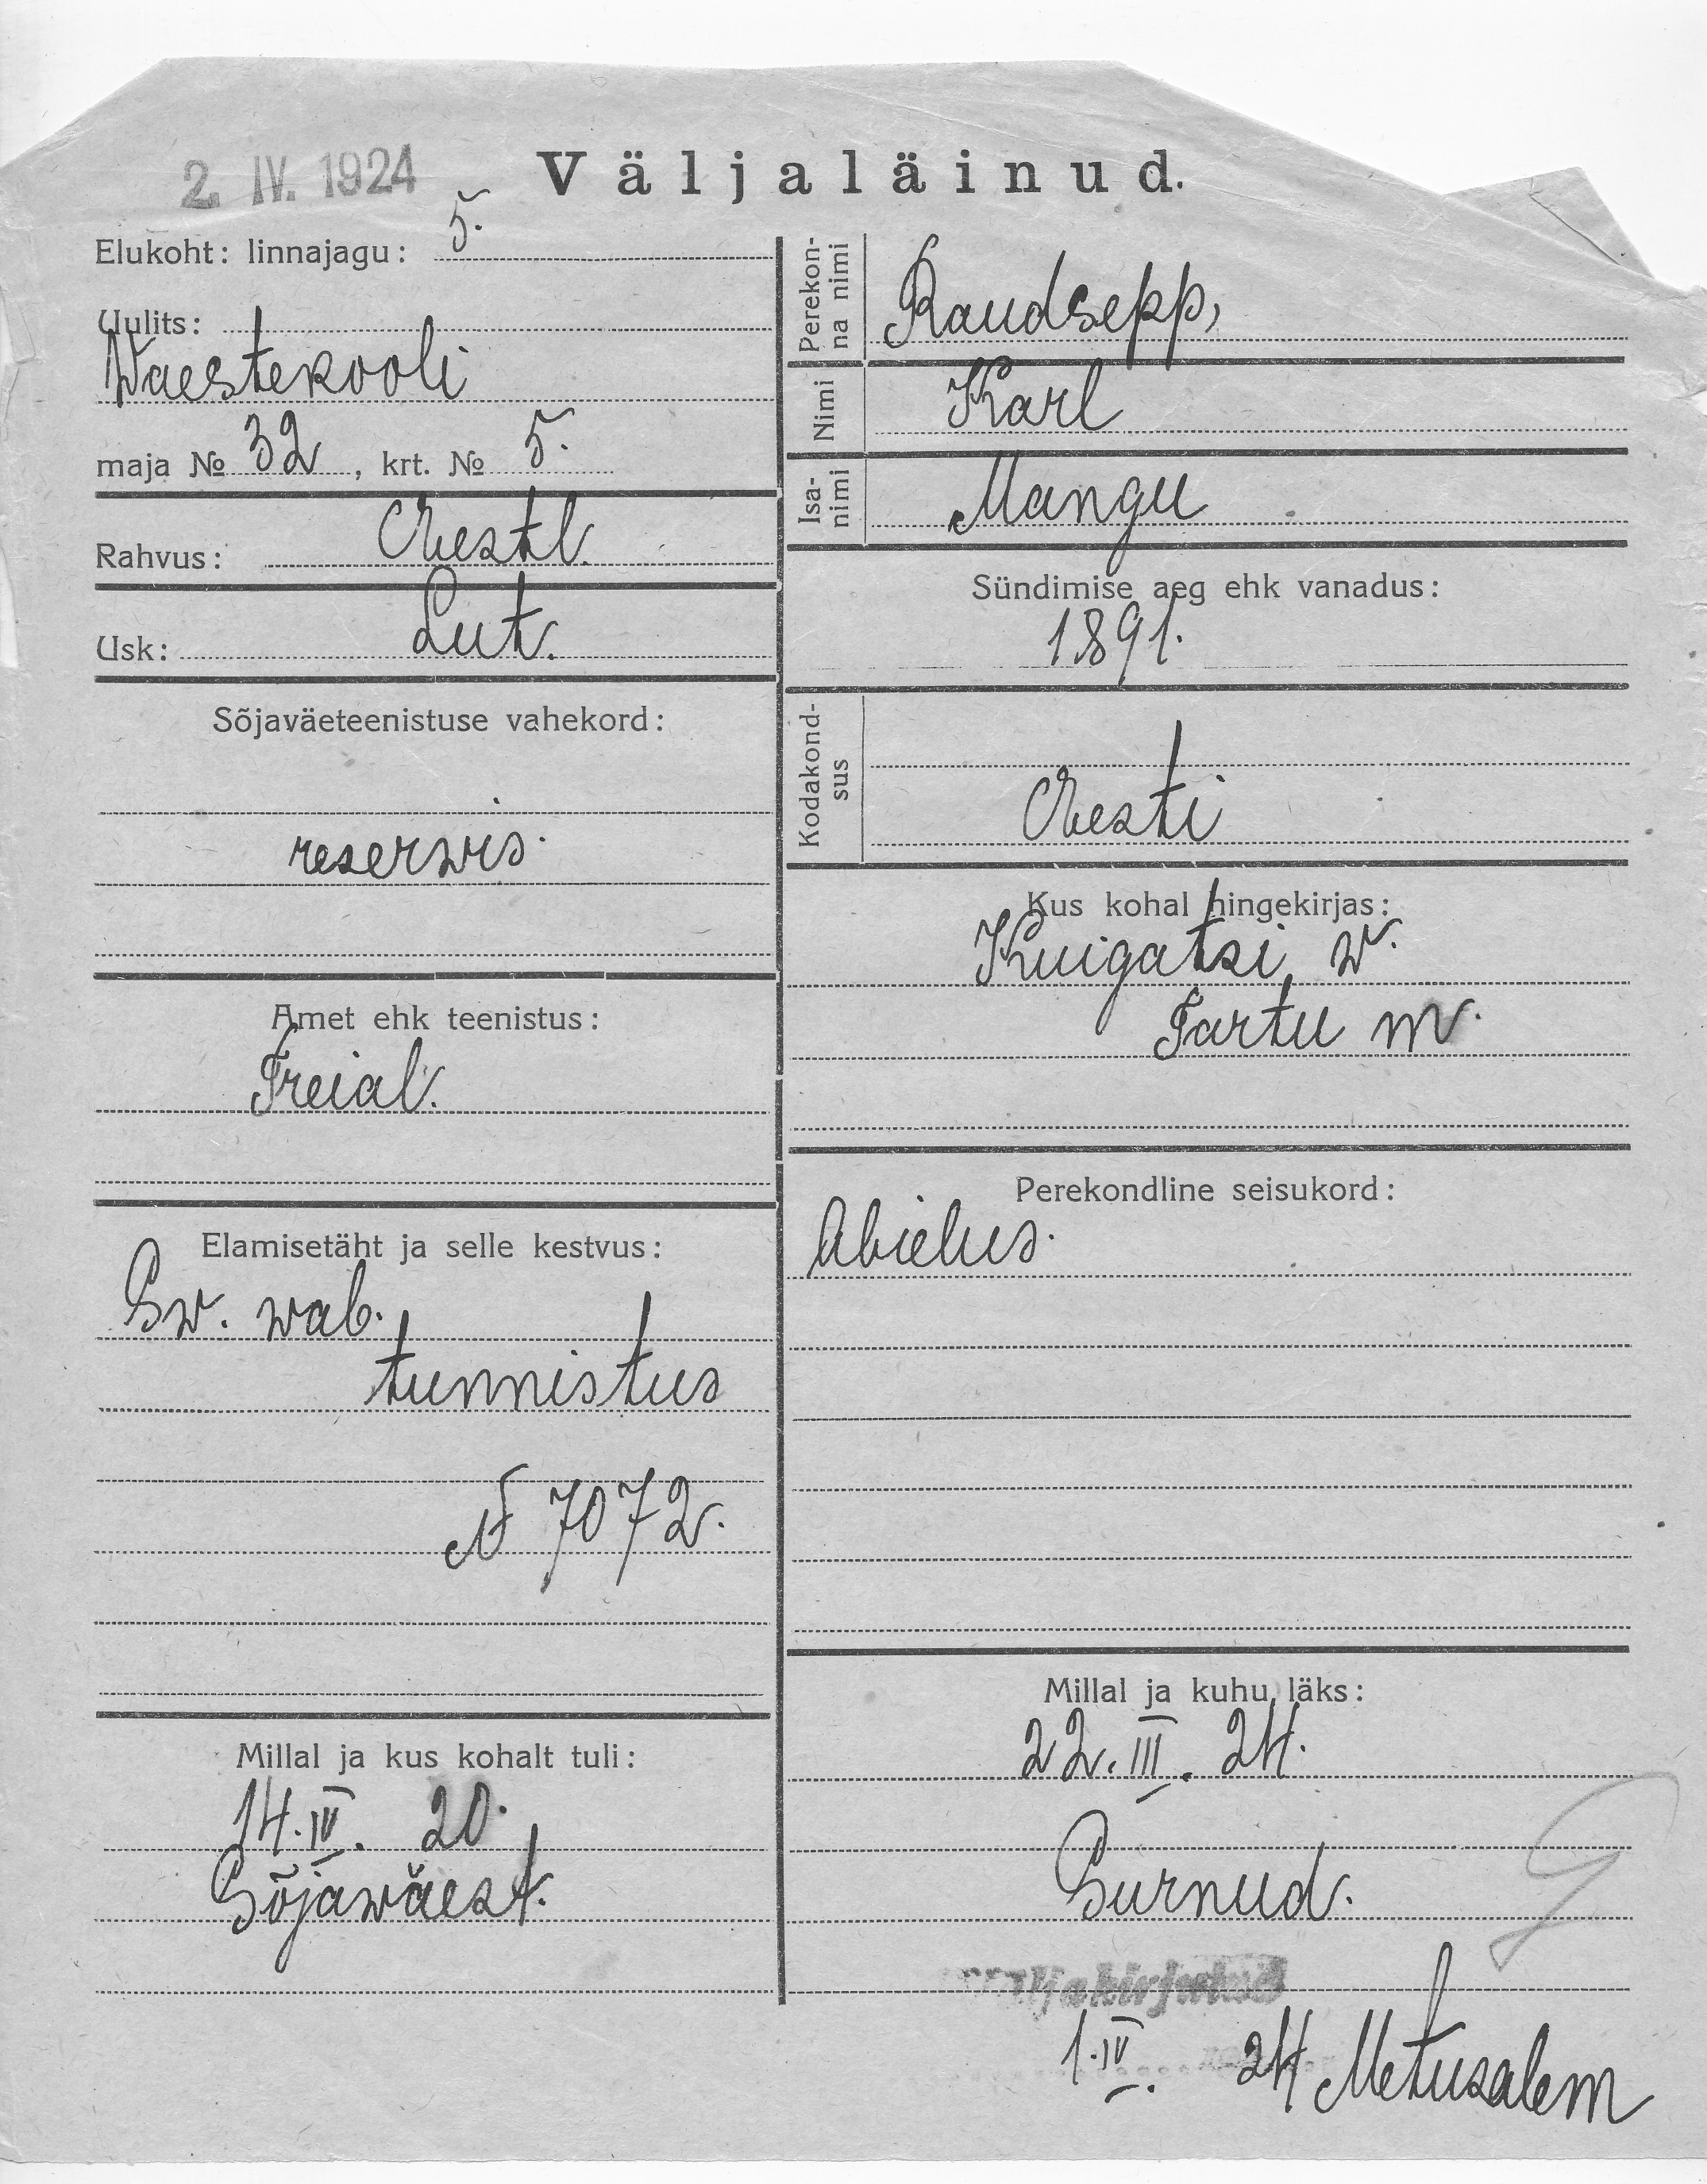 2. IV. 1924
Väljaläinud.
Elukoht: linnajagu: 5.
Uulits:
Waestekooli
maja № 32, krt. № 5.
Rahvus: Eestl.
Usk: Lut.
Sõjaväeteenistuse vahekord:
reserwis.
Amet ehk teenistus:
Treial.
Elamisetäht ja selle kestvus:
Sw. wab.
tunnistus
№ 7072.
Millal ja kus kohalt tuli:
14. IV. 20.
Sõjawäest.
Perekon-
na nimi
Raudsepp,
Nimi
Karl
Isa-
nimi
Mangu
Sündimise aeg ehk vanadus:
1891.
Kodakond-
sus
Eesti
Kus kohal hingekirjas:
Kuigatsi w.
Tartu m.
Perekondline seisukord:
Abielus.
Millal ja kuhu läks:
22. III. 24.
Surnud.
Väljakirjutud
1. IV. 24 Metusalem